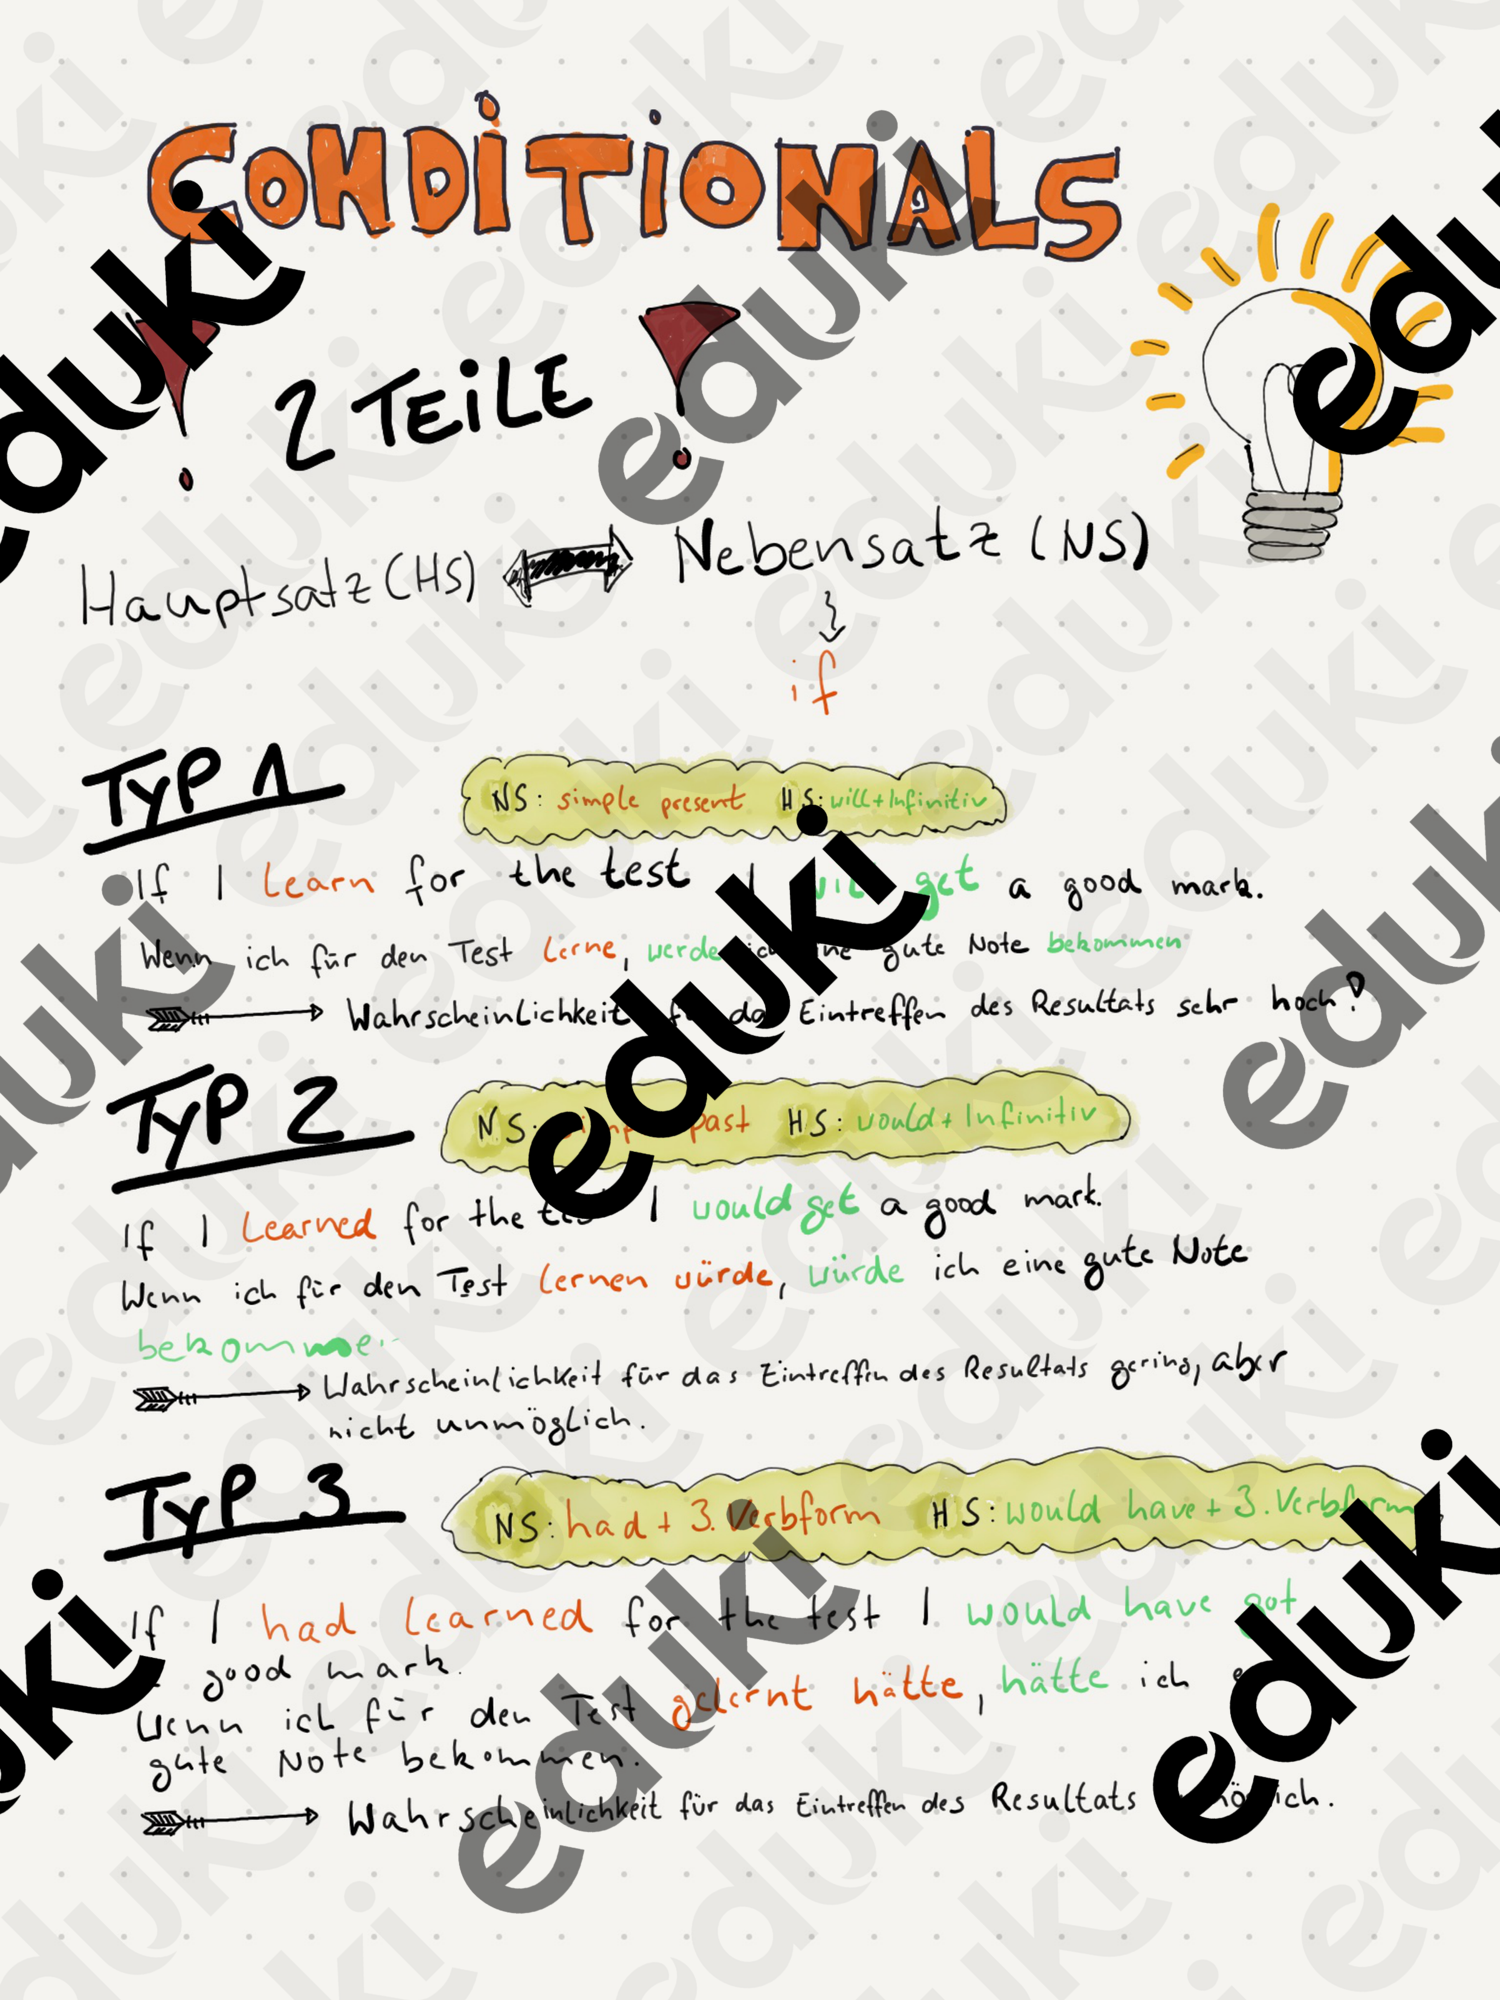 CONDITIONALS
2 TEILE
Hauptsatz (HS) Nebensatz (NS)
if
TYP 1
NS: simple present HS: will + Infinitiv
If I learn for the test I get a good mark.
Wenn ich für den Test lerne, werde gute Note bekommen
Wahrscheinlichkeit Eintreffen des Resultats sehr hoch!
TYP 2
NS: past HS: would + Infinitiv
If I learned for the I would get a good mark.
Wenn ich für den Test lernen würde, würde ich eine gute Note
bekommen
Wahrscheinlichkeit für das Eintreffen des Resultats gering, aber
nicht unmöglich.
TYP 3
NS: had + 3. Verbform HS: would have + 3. Verbform
If I had learned for the test I would have got
good mark.
Wenn ich für den Test gelernt hätte, hätte ich
gute Note bekommen.
Wahrscheinlichkeit für das Eintreffen des Resultats
eduki
eduki
eduki
eduki
eduki
eduki
eduki
eduki
eduki